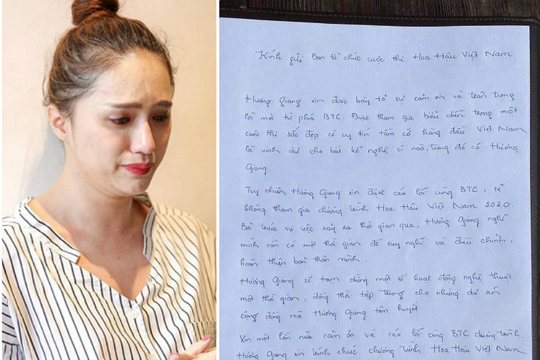 Kính gửi Ban tổ chức cuộc thi Hoa Hậu Việt Nam
Hương Giang xin được bày tỏ sự cảm ơn và trân trọng
lời mời từ phía BTC. Được tham gia biểu diễn trong một
cuộc thi sắc đẹp có uy tín tầm cỡ hàng đầu Việt Nam
là vinh dự cho bất kể nghệ sĩ nào, trong đó có Hương
Giang
Tuy nhiên, Hương Giang xin được cáo lỗi cùng BTC, sẽ
không tham gia chương trình Hoa Hậu Việt Nam 2020.
sự việc xảy ra thời gian qua, Hương Giang nghĩ
mình cần có một thời gian để suy nghĩ và điều chỉnh,
hoàn thiện bản thân mình.
Hương Giang sẽ tạm dừng một số hoạt động nghệ thuật
một thời gian, đồng thời tập trung cho những dự án
cộng đồng mà Hương Giang tâm huyết
Xin một lần nữa cảm ơn và cáo lỗi cùng BTC chương trình
Hương Giang xin kính chúc chương trình Hoa Hậu Việt Nam